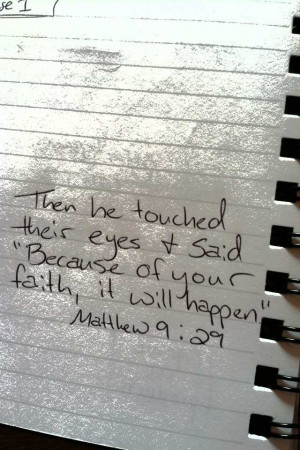 se 1
Then he touched
their eyes + said
"Because of your
faith, it will happen"
Matthew 9:29